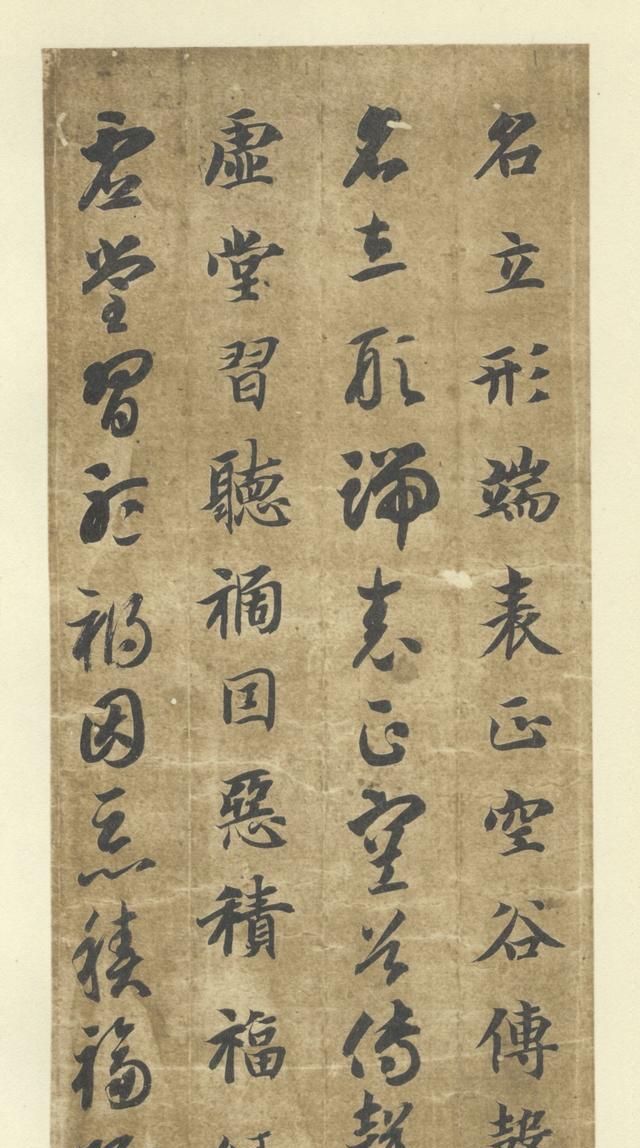 名立形端表正空谷傳聲
名立形端表正空谷傳聲
虛堂習聽禍因惡積福
虛堂習聽禍因惡積福